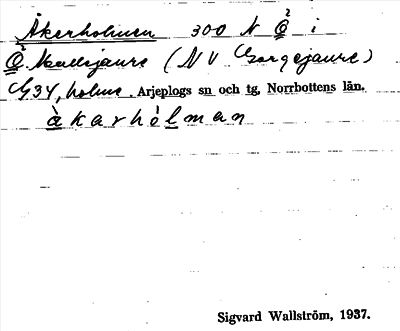 Åkerholmen 300 N Ö i
Ö. Kallsjaure (NV Gargejaure)
G34, holme. Arjeplogs sn och tg, Norrbottens län.
àkarhòlman
Sigvard Wallström, 1937.